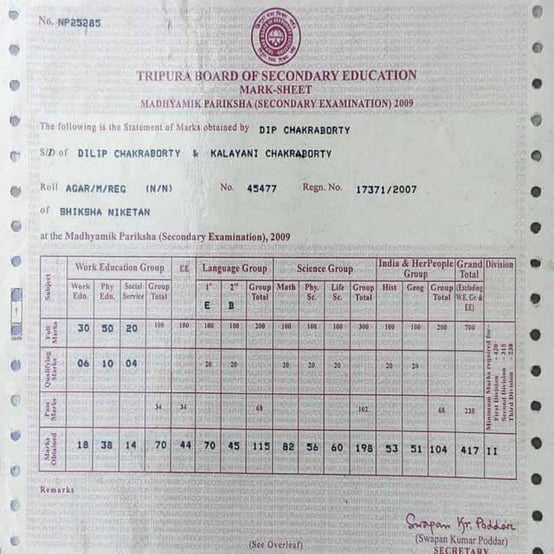 No. NP25285
TRIPURA BOARD OF SECONDARY EDUCATION
MARK-SHEET
MADHYAMIK PARIKSHA (SECONDARY EXAMINATION) 2009
The following is the Statement of Marks obtained by DIP CHAKRABORTY
S/D of DILIP CHAKRABORTY & KALAYANI CHAKRABORTY
Roll AGAR/M/REG (N/N) No. 45477 Regn. No. 17371/2007
of SHIKSHA NIKETAN
at the Madhyamik Pariksha (Secondary Examination), 2009
Subject Work Education Group EE Language Group Science Group India & HerPeople Group Grand Total Division
Work Edn. Phy Edn. Social Service Group Total 1st 2nd Group Total Math Phy. Sc. Life Sc. Group Total Hist Geog Group Total (Excluding W.E. Gr. & EE)
E B
Full Marks 30 50 20 100 100 100 100 200 100 100 100 300 100 100 200 700
Qualifying Marks 06 10 04 20 20 20 20 20 20 20
Pass Marks 34 34 68 102 68 238
Marks Obtained 18 38 14 70 44 70 45 115 82 56 60 198 53 51 104 417 II
Minimum Marks required for-
First Division - 420
Second Division - 315
Third Division - 238
Remarks
Swapan Kr. Poddar
(See Overleaf)
(Swapan Kumar Poddar)
SECRETARY